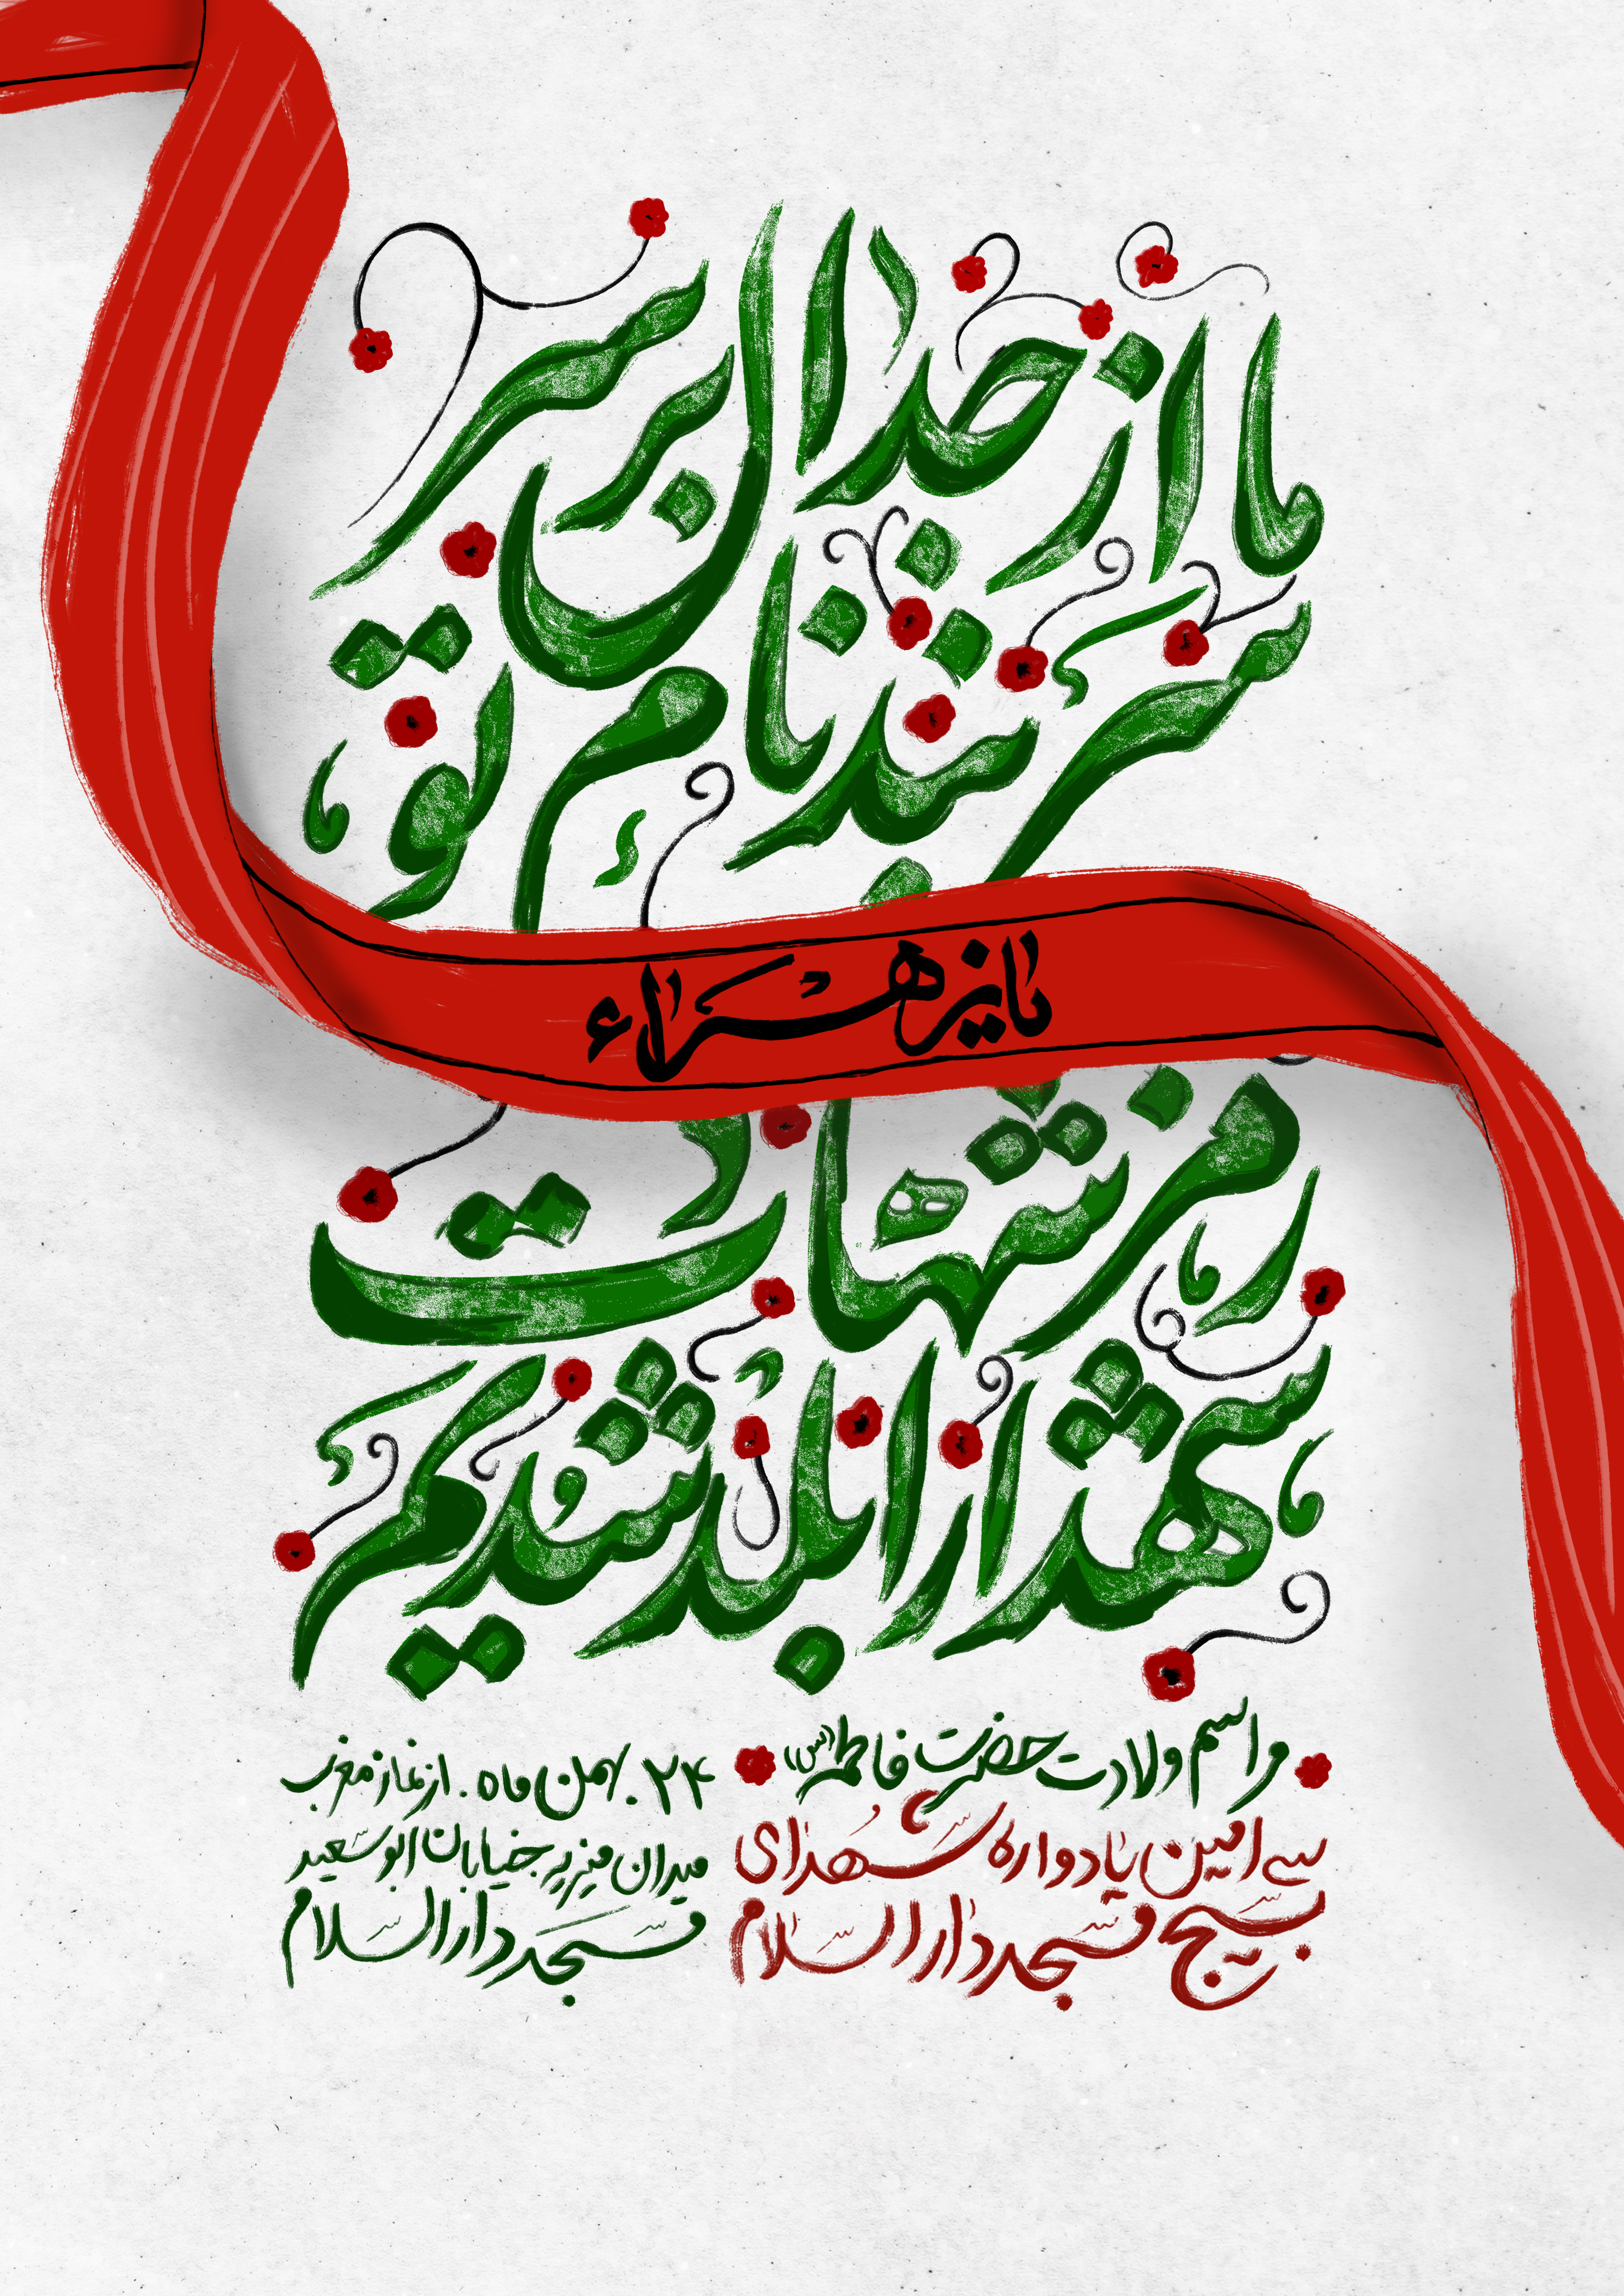 ما از جدال بر سر
سربند نام تو
یا زهراء
رمز شهادت
شهدا را بلد شدیم
مراسم ولادت حضرت فاطمه (س)
سی امین یادواره شهدای
بسیج مسجد دارالسلام
۲۴. بهمن ماه. از نماز مغرب
میدان منیریه خیابان ابوسعید
مسجد دارالسلام